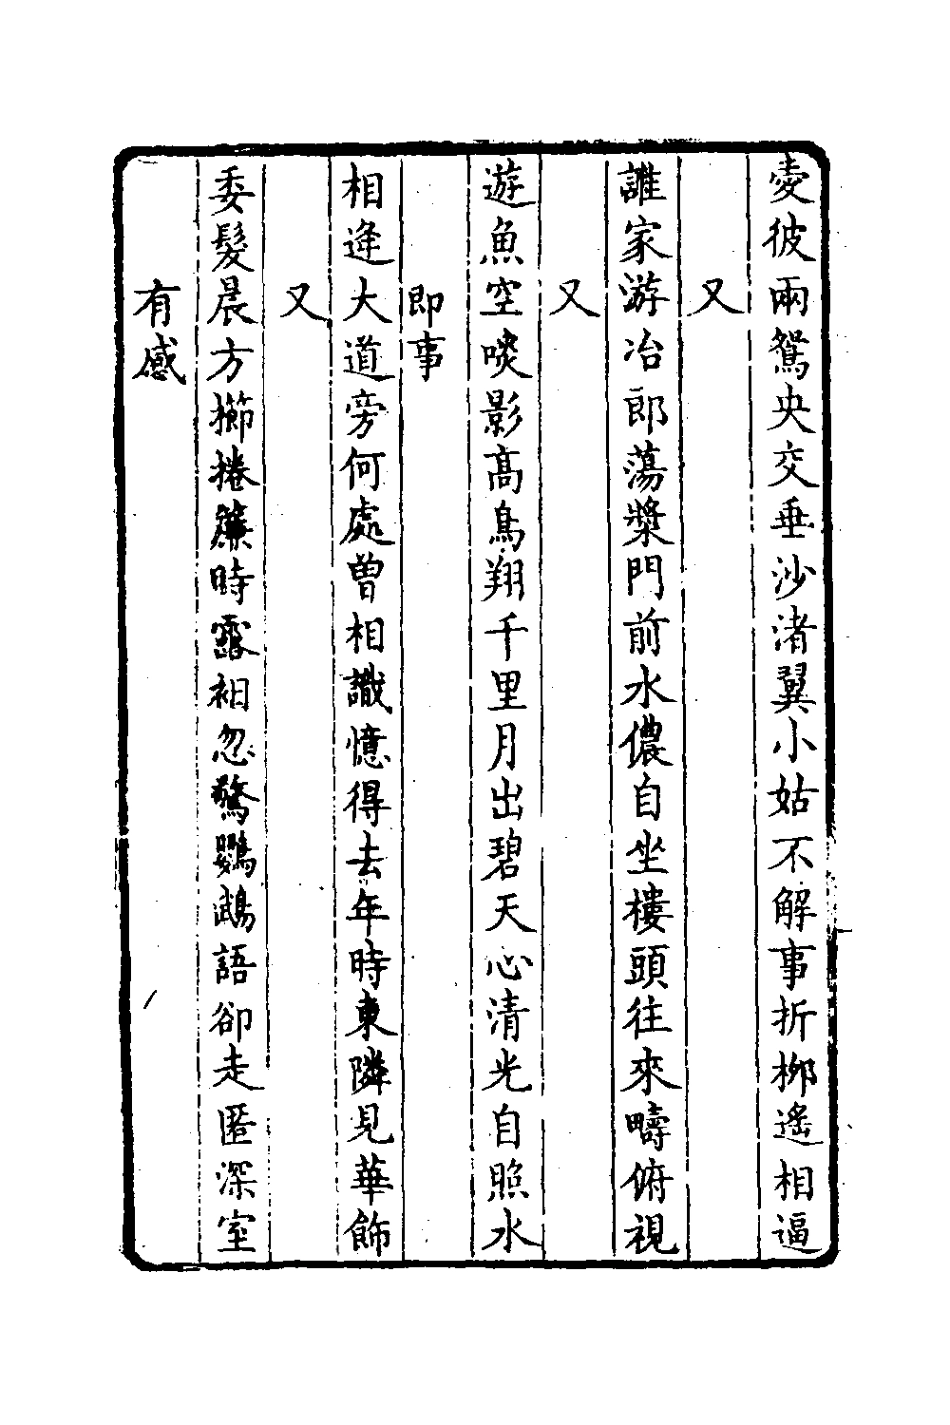 愛彼兩鴛央交垂沙渚翼小姑不解事折栁遙相逼
又
誰家游冶郎蕩槳門前水儂自坐樓頭往來疇俯視
又
遊魚空啖影高鳥翔千里月出碧天心清光自照水
即事
相逢大道旁何處曽相識憶得去年時東隣見華飾
又
委髮晨方櫛捲簾時露袹忽驚鸚鵡語卻走匿深室
有感